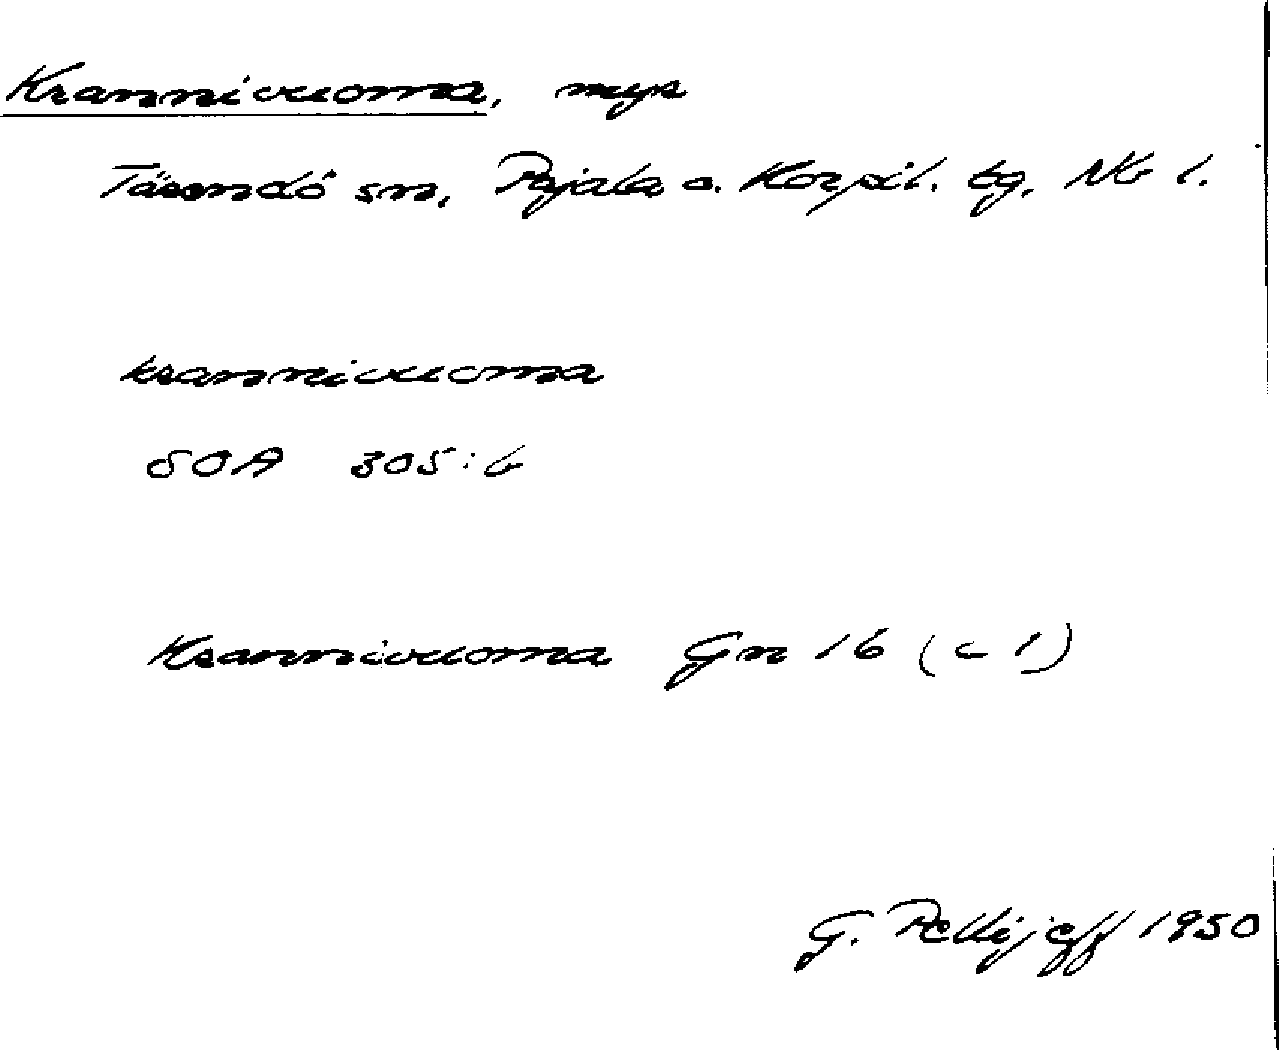 Krannivuoma, myr
Tärendö sn, Pajala o. Korpil. tg, Nb l.
krannivuoma
SOA 305:6
Krannivuoma Gn 16 (c 1)
G. Pellijeff 1950